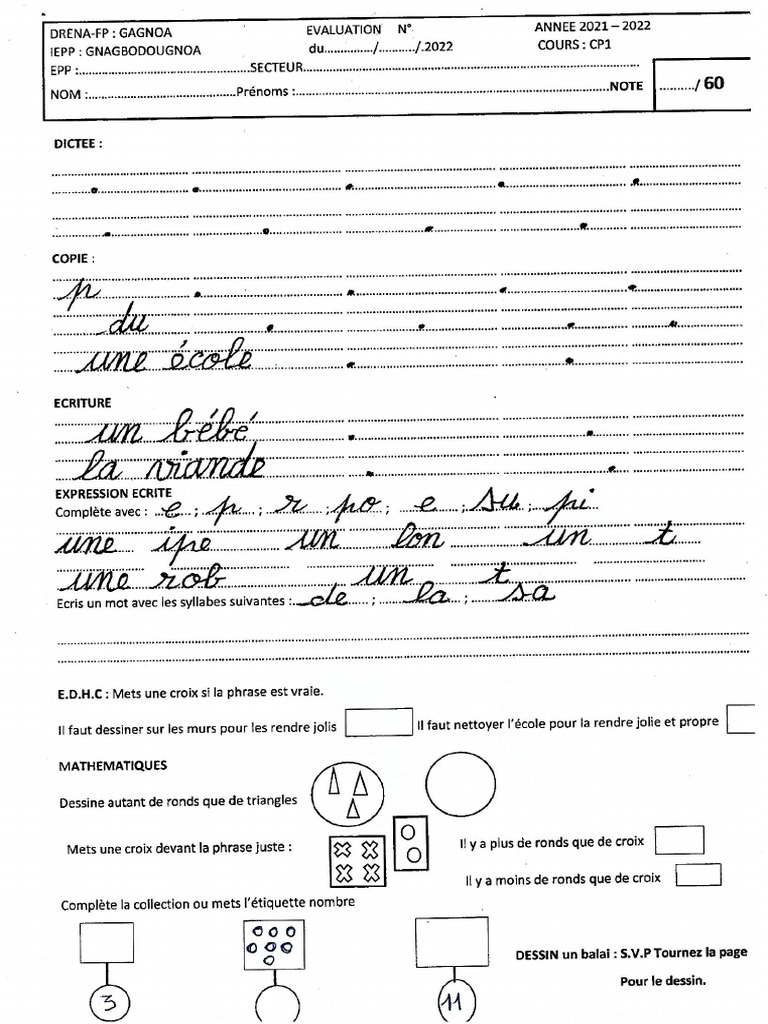 DRENA-FP : GAGNOA EVALUATION N° ANNEE 2021 – 2022
IEPP : GNAGBODOUGNOA du............../.........../.2022 COURS : CP1
EPP :..................................................SECTEUR..................................................
NOM :..........................................Prénoms :..................................................NOTE ........../ 60
DICTEE :
COPIE :
p
du
une école
ECRITURE
un bébé
la viande
EXPRESSION ECRITE
Complète avec : e ; p ; r ; po ; e ; su ; pi
une ipe un lon un t
une rob un t
Ecris un mot avec les syllabes suivantes : de ; la ; sa
E.D.H.C : Mets une croix si la phrase est vraie.
Il faut dessiner sur les murs pour les rendre jolis Il faut nettoyer l'école pour la rendre jolie et propre
MATHEMATIQUES
Dessine autant de ronds que de triangles
Mets une croix devant la phrase juste :
Il y a plus de ronds que de croix
Il y a moins de ronds que de croix
Complète la collection ou mets l'étiquette nombre
DESSIN un balai : S.V.P Tournez la page
Pour le dessin.
3 11